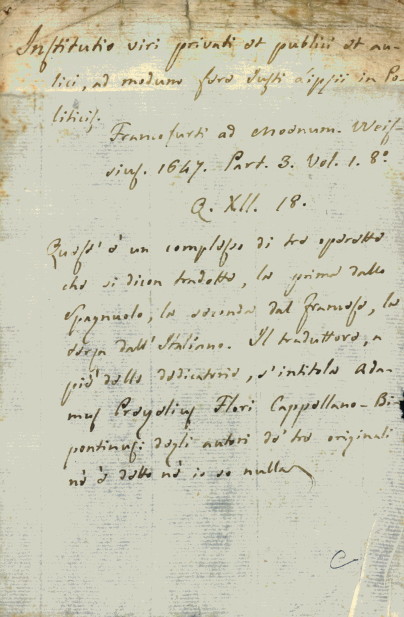 Institutio viri privati et publici et au-
lici, ad modum fere Justi Lipsii in Po-
liticis.
Francofurti ad Moenum. Weis-
sius. 1647. Part. 3. Vol. 1. 8°
Q. XII. 18.
Quest' è un complesso di tre operette
che si dicon tradotte, la prima dallo
Spagnuolo, la seconda dal francese, la
terza dall' Italiano. Il traduttore, a
piè della dedicatoria, s'intitola Ada-
mus Flori Cappellano-Bi-
pontinus degli autori de' tre originali
nè è detto nè io so nulla
C